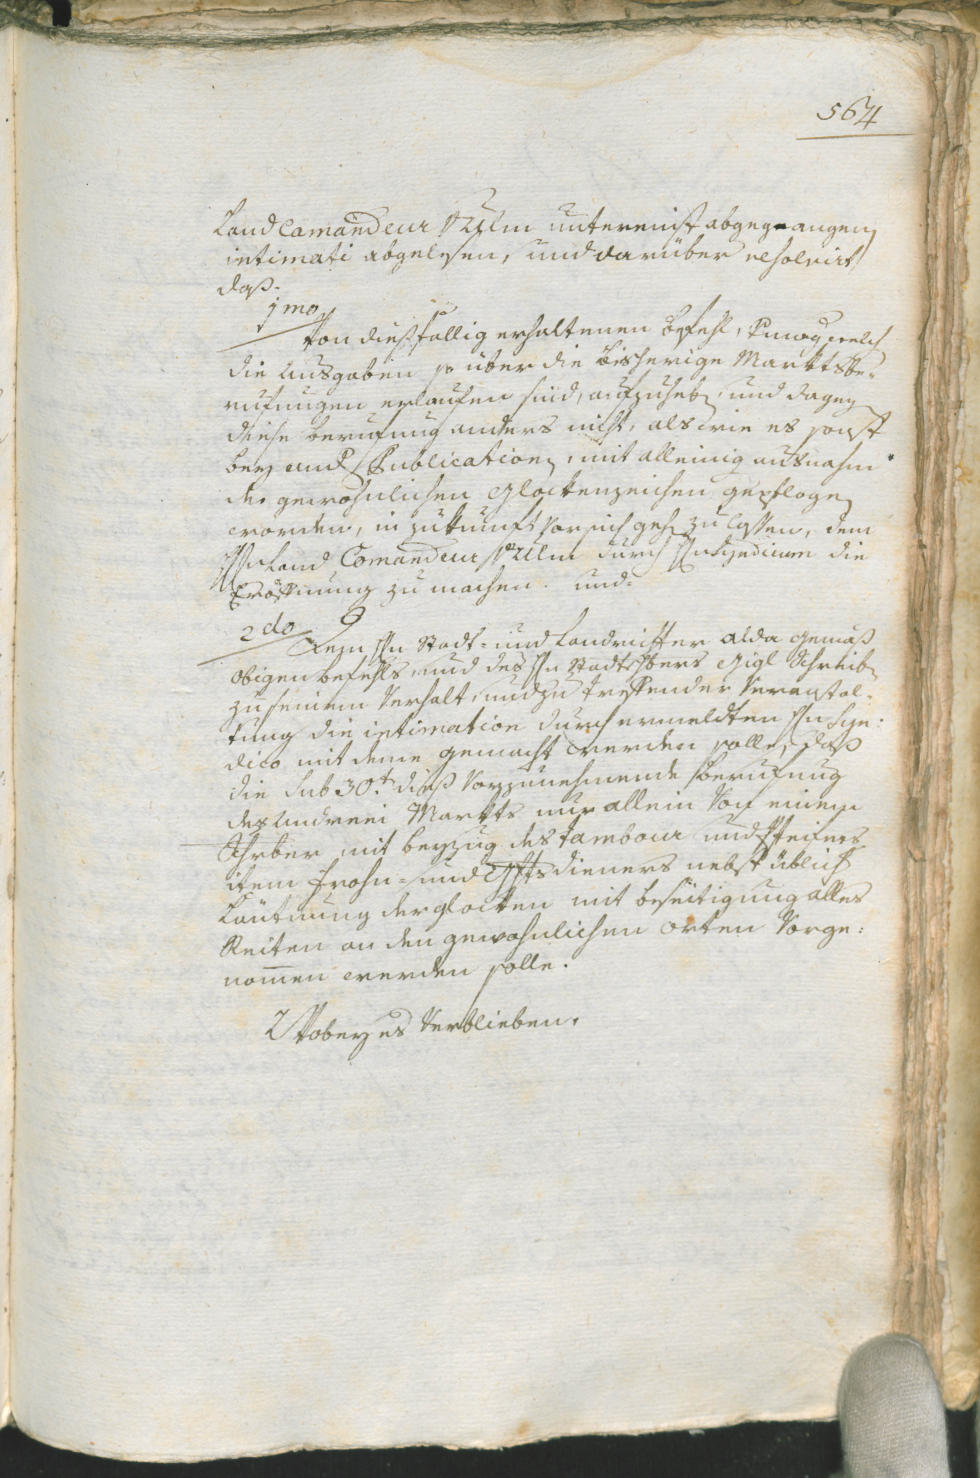 564
Land Comandeur v Ulm unterm ist abgegangen
intimati abgelesen, und darüber resolvirt
daß.
1mo
Von dießfällig erhaltenen Befehl, welch
die Ausgaben so über die bisherige Marktsbe-
ruefungen erlaufen sind, aufzuheben, und dagegen
diese beruefung anders nicht, als wie es sonst
bey and Publicationen, mit alleinig ausnahm
der gewohnlichen Glockenzeichen gepflogen
worden, in zukunft vor sich gehen zu lassen, dem
Hn Land Comandeur v Ulm durch Hn Syndicum die
Eröffnung zu machen. und
2do
Dem Hn Stadt- und Landrichter alda gemäß
obigen befehls, und des Hn Stadtschbers Gigl Schreiben
zu seinem Verhalt, und zu treffender Veranstal-
tung die intimation durch ermeldten Hn Syn:
dico mit deme gemacht werden solle, daß
die sub 30t dieß vorzunehmende beruefung
des Andreei Markts nur allein von einem
Schrber mit beyzug des tambour und Pfeifers
item frohn- und Gschtsdieners nebst üblich
Läutung der glocken mit beseitigung alles
Reiten an den gewohnlichen orten Vorge:
nom̄en werden solle.
Wobey es Verblieben.